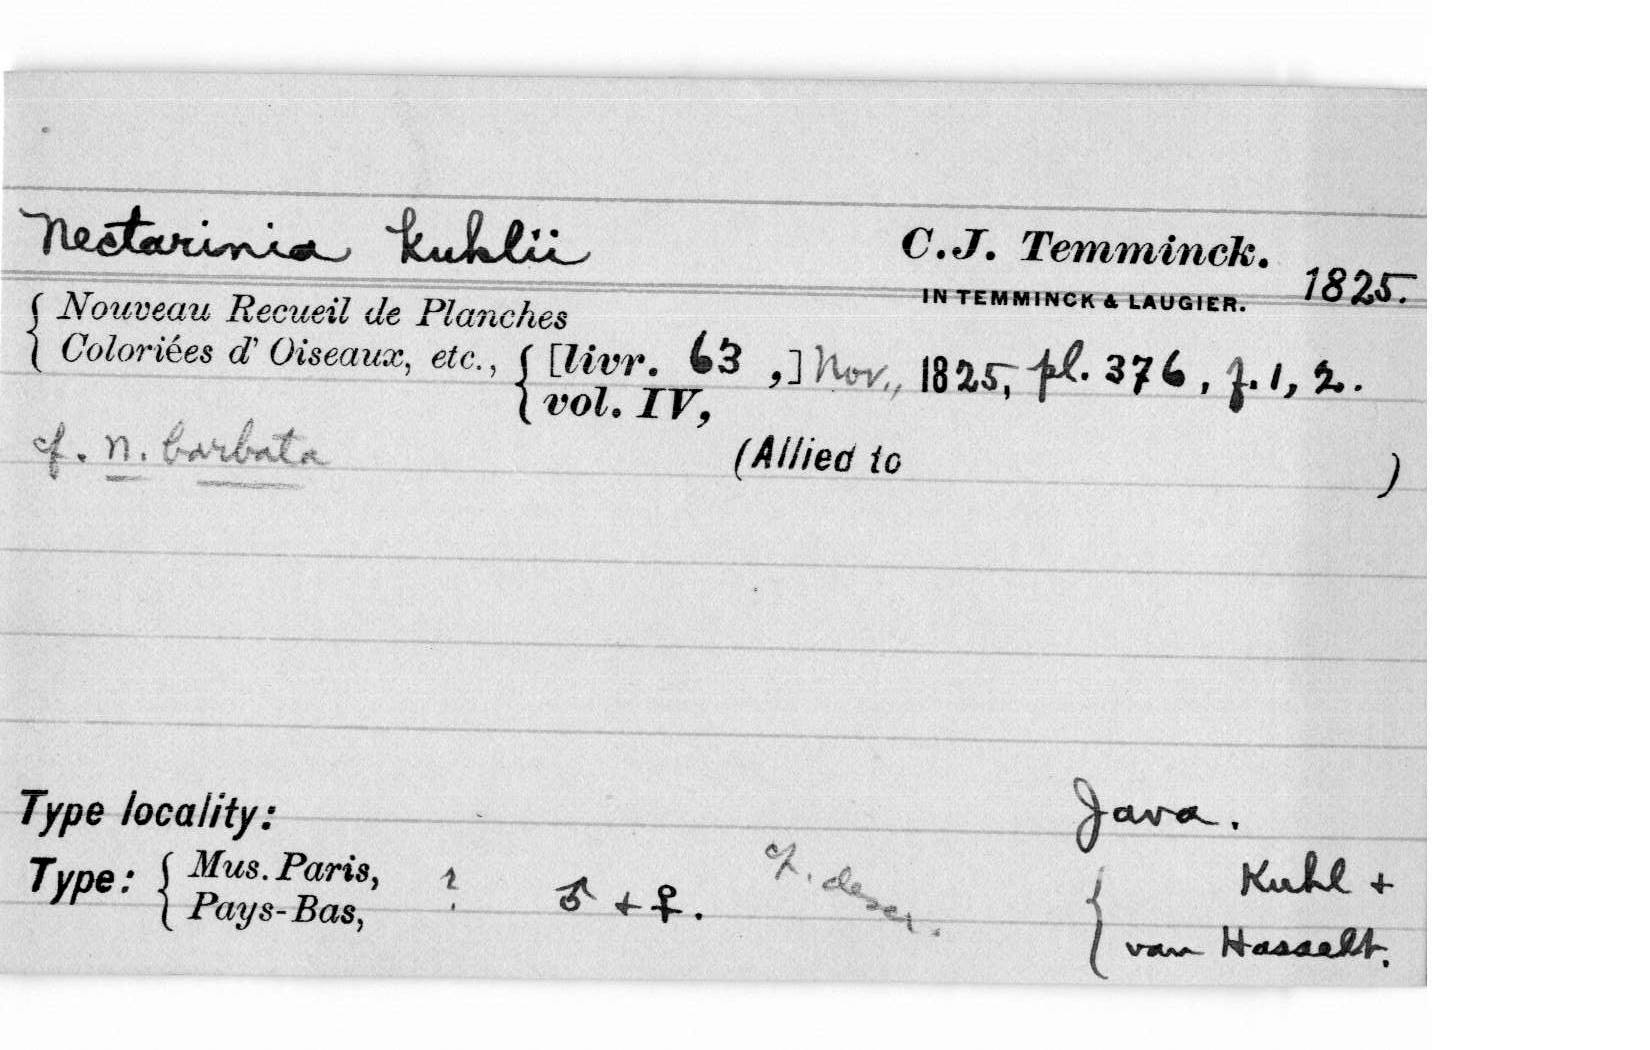 Nectarinia kuhlii C.J. Temminck. 1825.
IN TEMMINCK & LAUGIER.
{ Nouveau Recueil de Planches
Coloriées d' Oiseaux, etc., { [livr. 63 ,] Nov., 1825, pl. 376, f. 1, 2.
vol. IV,
cf. N. barbata (Allied to )
Type locality: Java.
Type: { Mus. Paris, ? ♂ + ♀. cf. descr. { Kuhl +
Pays-Bas, van Hasselt.